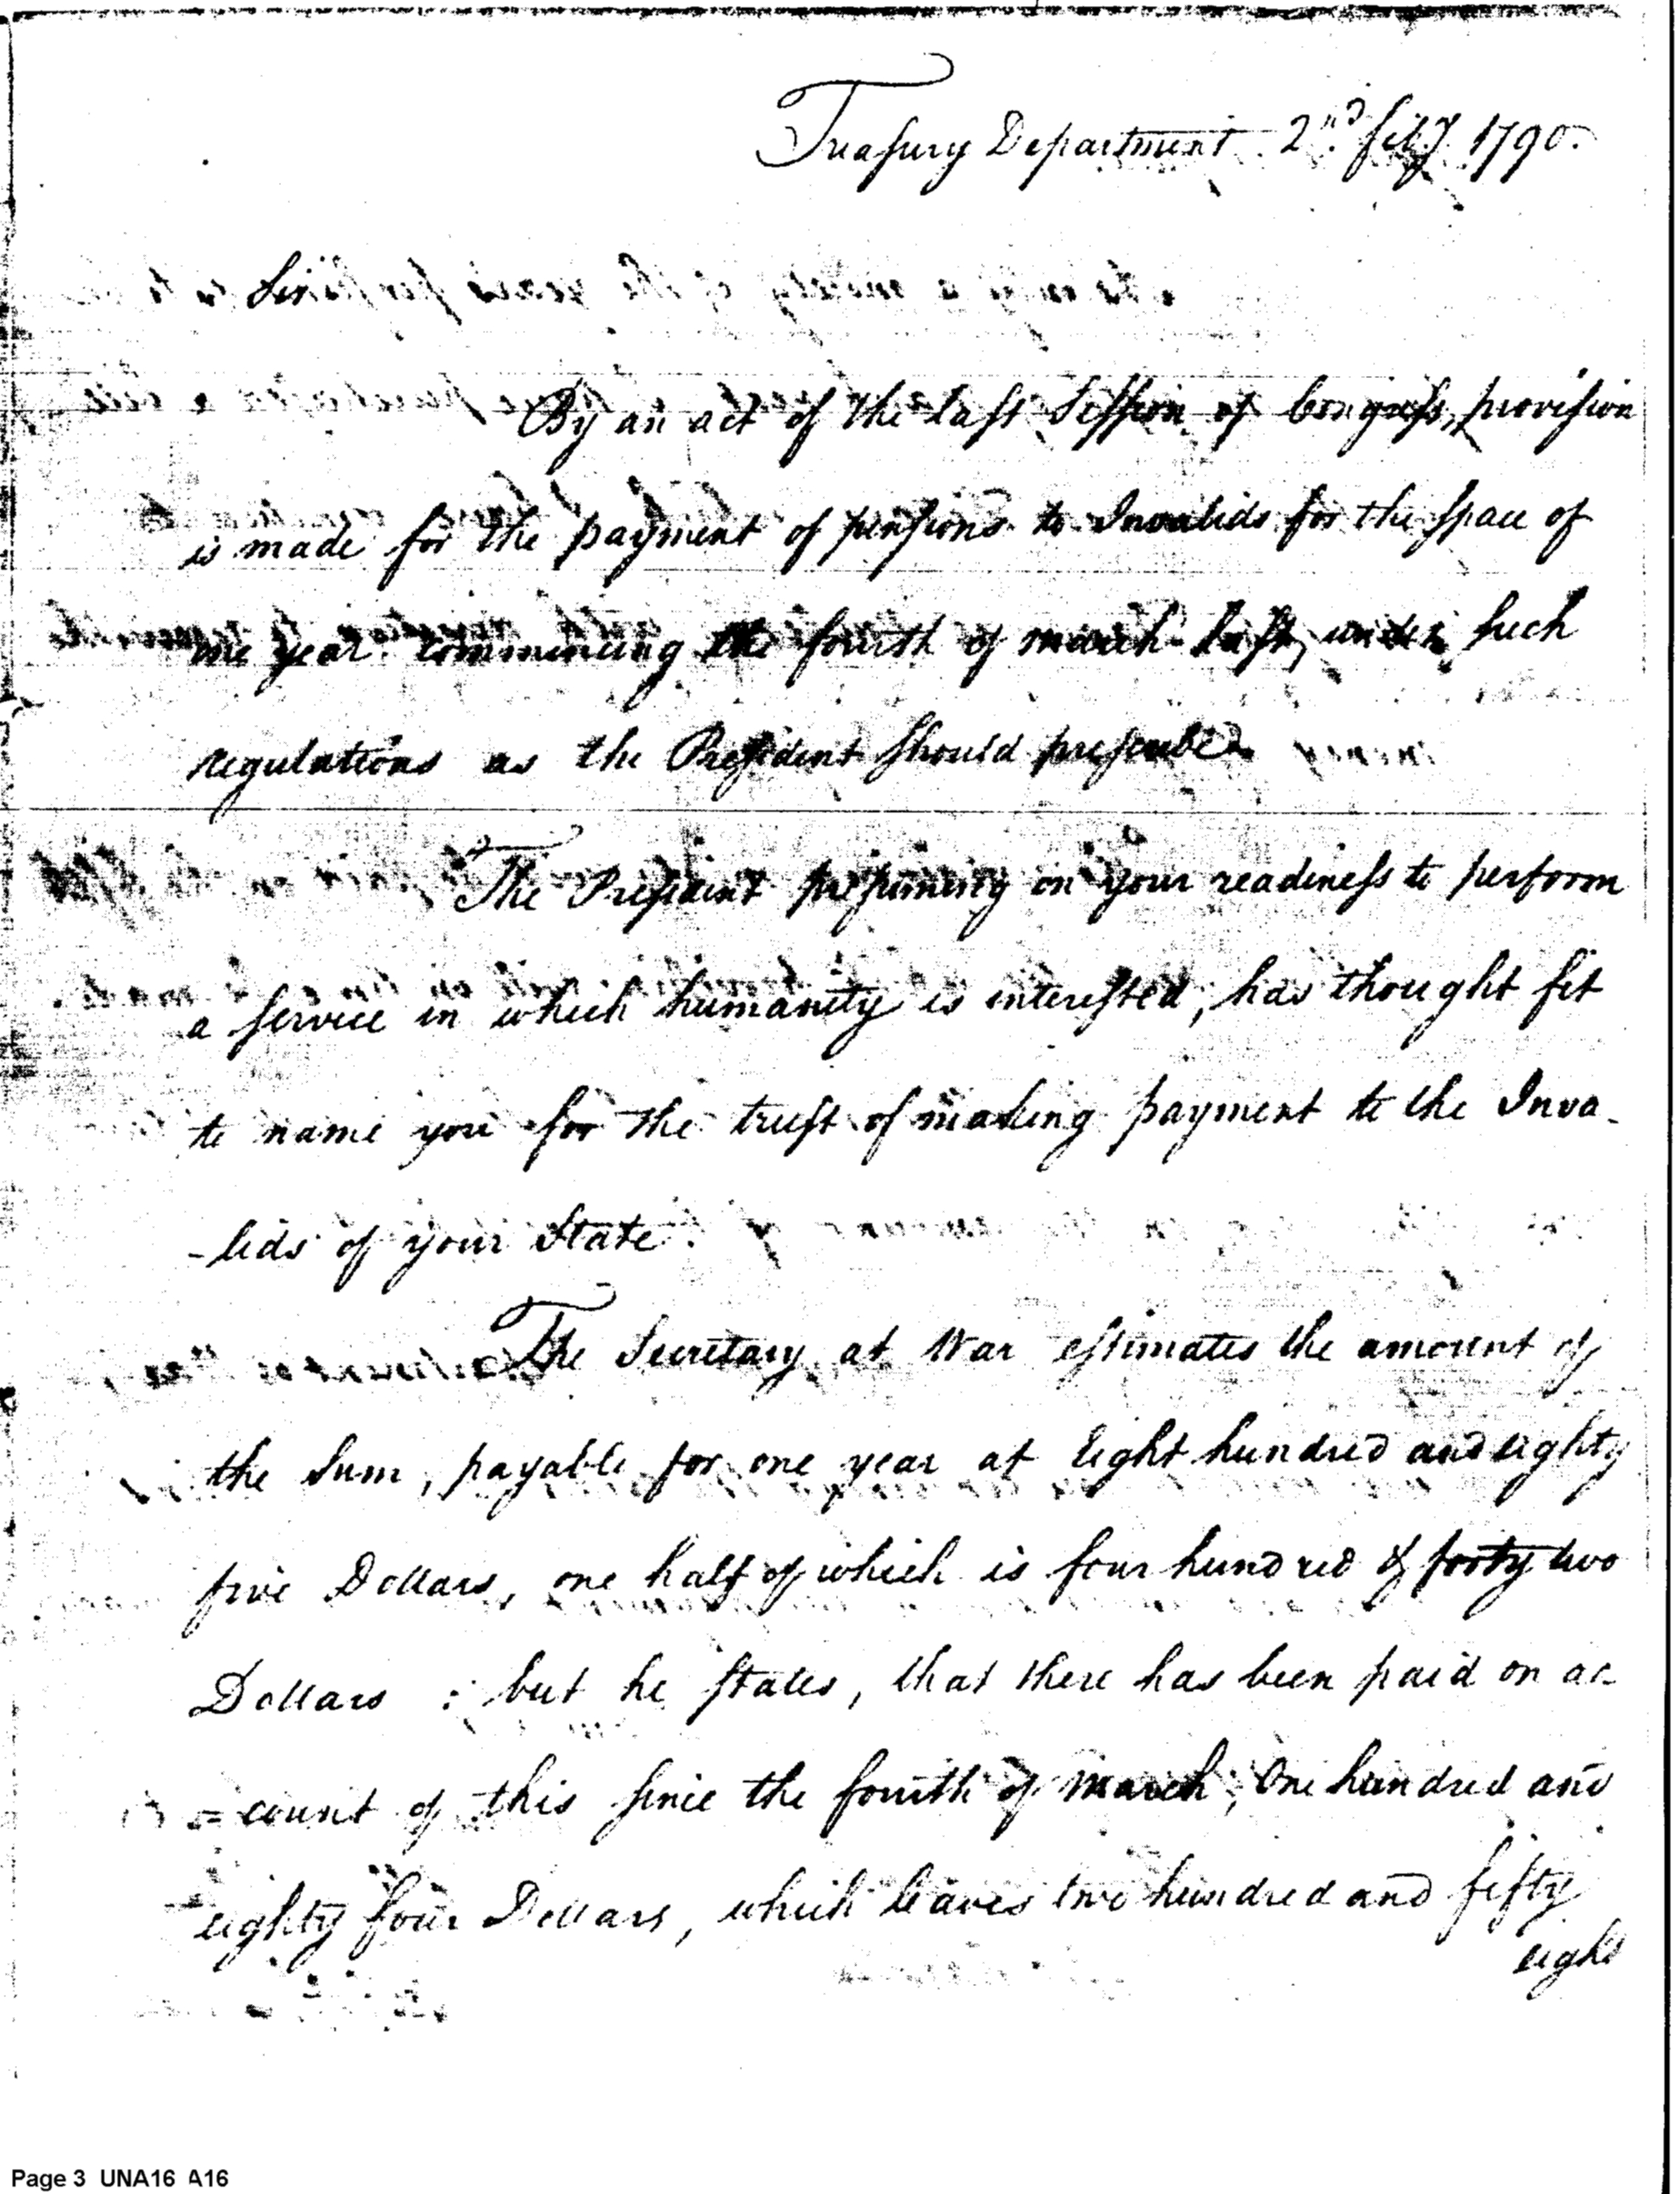 Treasury Department 2nd feby 1790.
Sir
By an act of the last Session of Congress, provision
is made for the payment of pensions to Invalids for the space of
one year commencing the fourth of march last, under such
regulations as the President should prescribe.
The President presuming on your readiness to perform
a service in which humanity is interested, has thought fit
to name you for the trust of making payment to the Inva-
-lids of your State.
The Secretary at War estimates the amount of
the Sum, payable for one year at Eight hundred and eighty
five Dollars, one half of which is four hundred & forty two
Dollars : but he states, that there has been paid on ac-
=count of this since the fourth of march; One hundred and
eighty four Dollars, which leaves two hundred and fifty
eight
Page 3 UNA16 A16